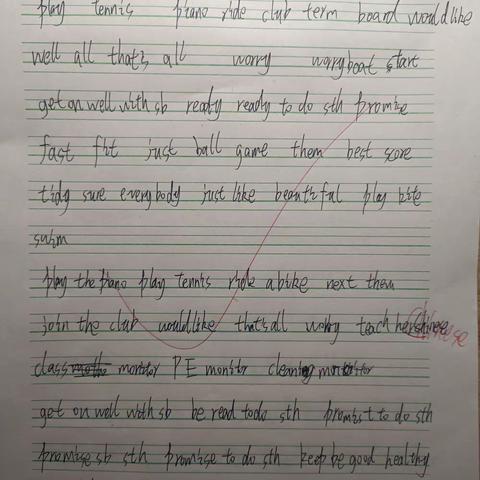 play tennis piano ride club term board would like
well all that's all worry worry boat start
get on well with sb ready ready to do sth promise
fast fit just ball game them best score
tidy sure everybody just like beautiful play bite
swim
play the piano play tennis ride a bike next them
join the club would like that's all worry teach her Chinese
class monitor PE monitor cleaning monitor
get on well with sb be read to do sth promist to do sth
promise sb sth promise to do sth keep be good healthy